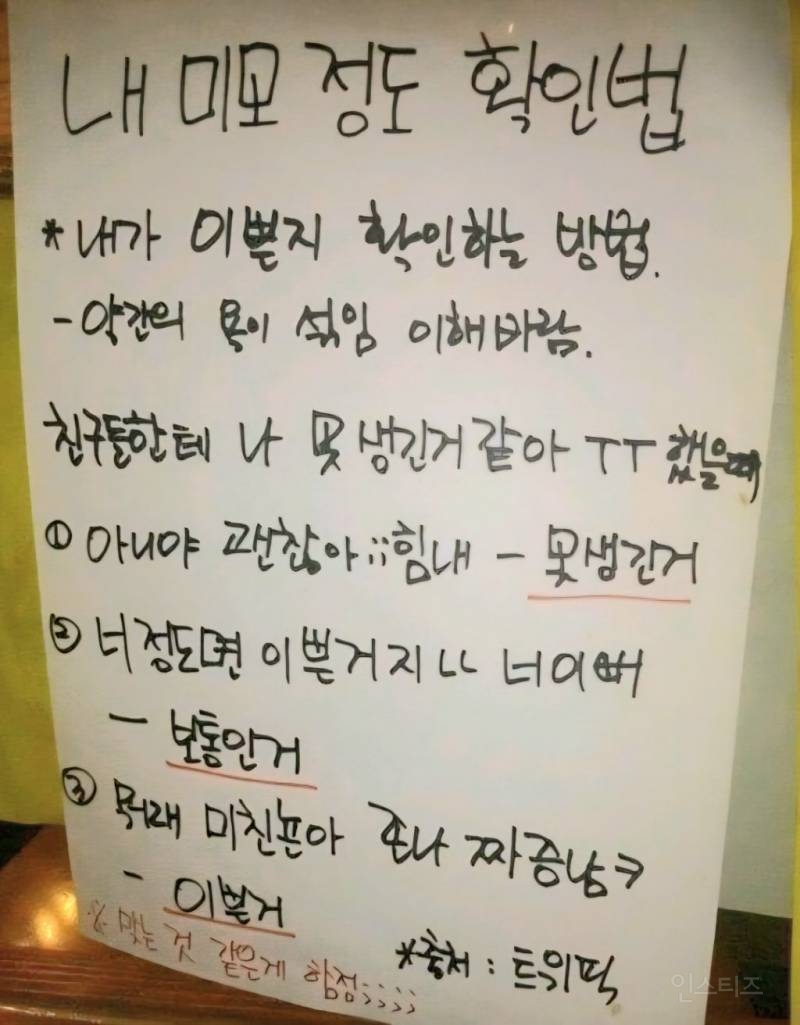 내 미모 정도 확인법
* 내가 이쁜지 확인하는 방법.
- 약간의 욕이 섞임 이해바람.
친구들한테 나 못생긴거같아 ㅜㅜ 했을때
① 아니야 괜찮아;;힘내 - 못생긴거
② 너정도면 이쁜거지ㄴㄴ 너이뻐
- 보통인거
③ 뭐래 미친년아 존나 짜증남ㅋ
- 이쁜거
※ 맞는 것 같은게 함정;;;;
*출처 : 트위픽
인스티즈